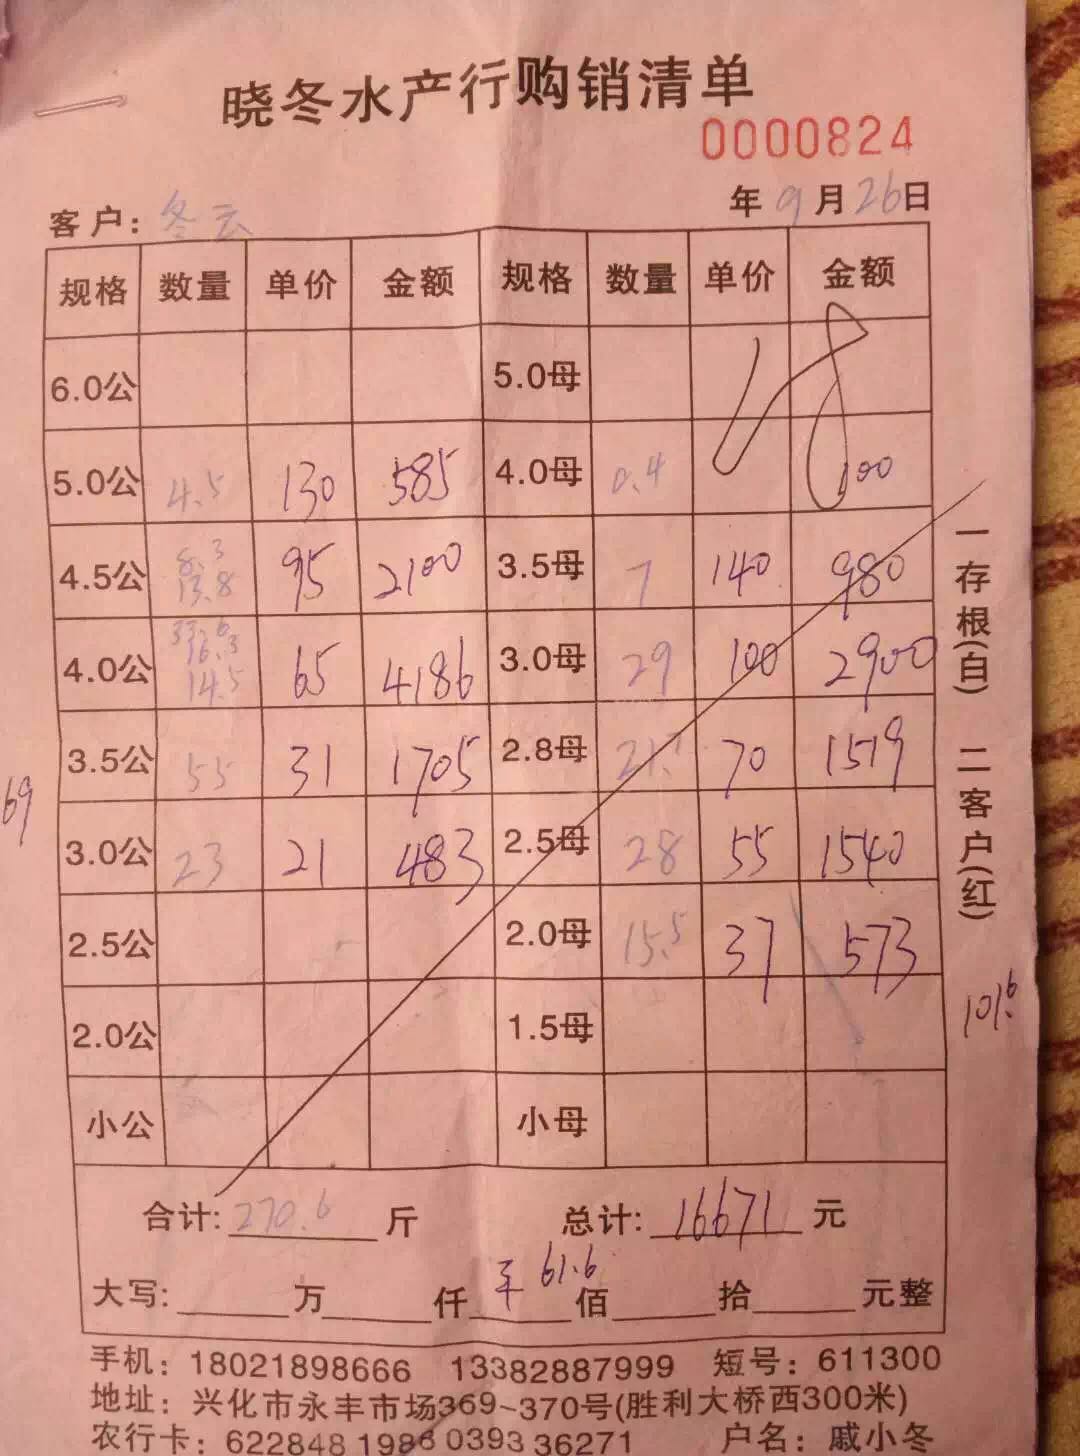 晓冬水产行购销清单
0000824
客户: 冬云 年 9 月 26 日
规格 数量 单价 金额 规格 数量 单价 金额
6.0公 5.0母
5.0公 4.5 130 585 4.0母 0.4 100
4.5公 8.3 13.8 95 2100 3.5母 7 140 980
4.0公 33.6 16.3 14.5 65 4186 3.0母 29 100 2900
3.5公 55 31 1705 2.8母 21.7 70 1519
69
3.0公 23 21 483 2.5母 28 55 1540
2.5公 2.0母 15.5 37 573
2.0公 1.5母
101.6
小公 小母
合计: 270.6 斤 总计: 16671 元
平 61.6
大写: 万 仟 佰 拾 元整
手机: 18021898666 13382887999 短号: 611300
地址: 兴化市永丰市场369~370号(胜利大桥西300米)
农行卡: 622848 1986 0393 36271 户名: 戚小冬
一存根(白) 二客户(红)